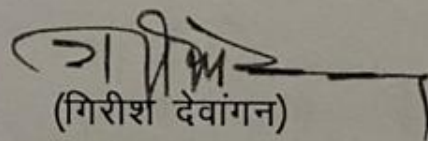 (गिरीश देवांगन)